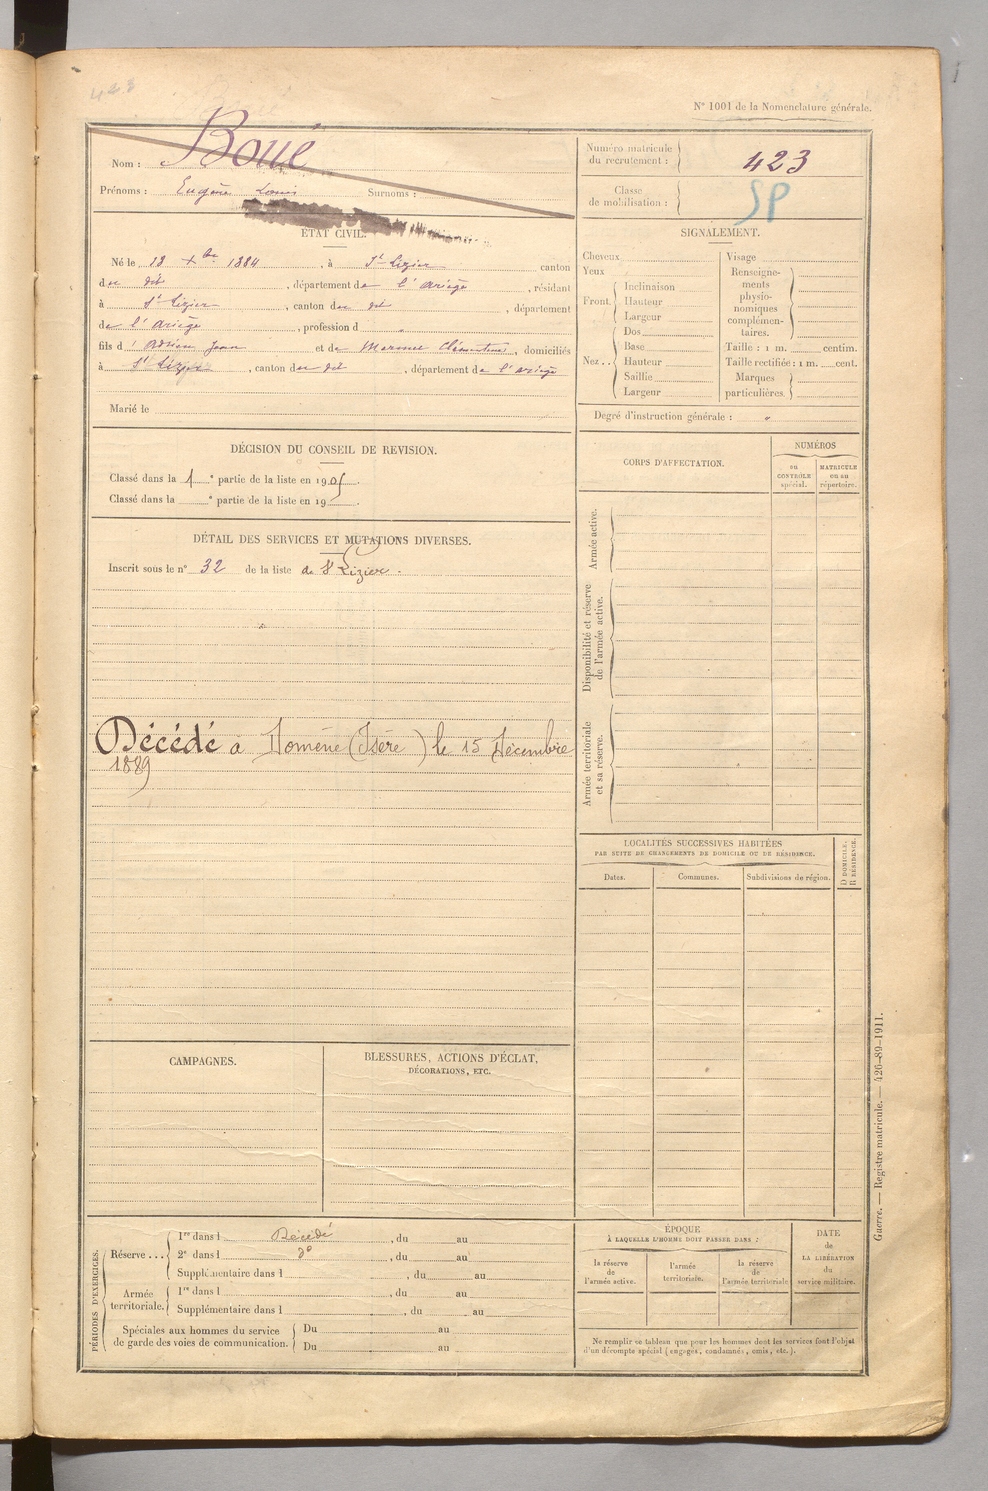 423
N° 1001 de la Nomenclature générale.
Nom : Boué
Prénoms : Eugène Louis Surnoms :
Numéro matricule du recrutement : 423
Classe de mobilisation :
SP
ÉTAT CIVIL.
Né le 18 Xbre 1884, à St Lizier canton
du dit, département de l'Ariège, résidant
à St Lizier, canton du dit, département
de l'Ariège, profession d "
fils d' Adrien Jean et de Clémentine, domiciliés
à St Lizier, canton du dit, département de l'Ariège
Marié le
SIGNALEMENT.
Cheveux
Yeux
Front.
Inclinaison
Hauteur
Largeur
Nez..
Dos
Base
Hauteur
Saillie
Largeur
Visage
Renseignements physionomiques complémentaires.
Taille : 1 m. centim.
Taille rectifiée : 1 m. cent.
Marques particulières.
Degré d'instruction générale : "
DÉCISION DU CONSEIL DE REVISION.
Classé dans la 1e partie de la liste en 1905.
Classé dans la e partie de la liste en 19 .
DÉTAIL DES SERVICES ET MUTATIONS DIVERSES.
Inscrit sous le n° 32 de la liste de St Lizier.
Décédé à Domène (Isère) le 15 Décembre
1889
CORPS D'AFFECTATION.
NUMÉROS
au CONTRÔLE spécial.
MATRICULE ou au répertoire.
Armée active.
Disponibilité et réserve de l'armée active.
Armée territoriale et sa réserve.
LOCALITÉS SUCCESSIVES HABITÉES
PAR SUITE DE CHANGEMENTS DE DOMICILE OU DE RÉSIDENCE.
Dates.
Communes.
Subdivisions de région.
D DOMICILE.
R RÉSIDENCE.
CAMPAGNES.
BLESSURES, ACTIONS D'ÉCLAT,
DÉCORATIONS, ETC.
PÉRIODES D'EXERCICES.
Réserve...
1re dans l Décédé, du au
2e dans l do, du au
Supplémentaire dans l , du au
Armée territoriale.
1re dans l , du au
Supplémentaire dans l , du au
Spéciales aux hommes du service de garde des voies de communication.
Du au
Du au
ÉPOQUE
À LAQUELLE L'HOMME DOIT PASSER DANS :
la réserve de l'armée active.
l'armée territoriale.
la réserve de l'armée territoriale
DATE
de
LA LIBÉRATION
du
service militaire.
Ne remplir ce tableau que pour les hommes dont les services font l'objet
d'un décompte spécial (engagés, condamnés, omis, etc.).
Guerre. — Registre matricule. — 426-89-1911.